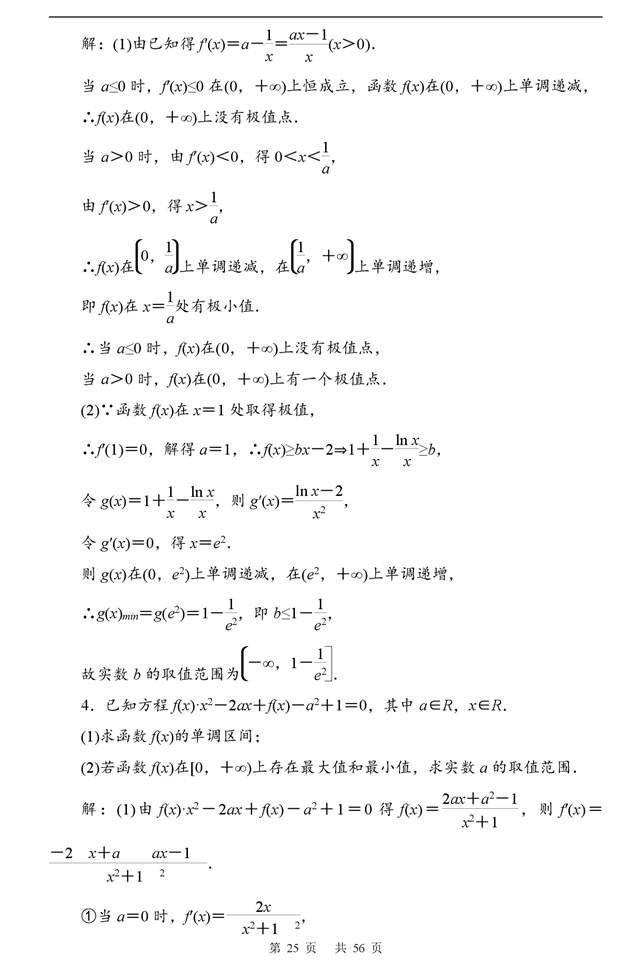 解：(1)由已知得 f′(x)＝a－1/x＝(ax－1)/x(x＞0)．
当 a≤0 时，f′(x)≤0 在(0，＋∞)上恒成立，函数 f(x)在(0，＋∞)上单调递减，
∴f(x)在(0，＋∞)上没有极值点．
当 a＞0 时，由 f′(x)＜0，得 0＜x＜1/a，
由 f′(x)＞0，得 x＞1/a，
∴f(x)在(0，1/a)上单调递减，在(1/a，＋∞)上单调递增，
即 f(x)在 x＝1/a处有极小值．
∴当 a≤0 时，f(x)在(0，＋∞)上没有极值点，
当 a＞0 时，f(x)在(0，＋∞)上有一个极值点．
(2)∵函数 f(x)在 x＝1 处取得极值，
∴f′(1)＝0，解得 a＝1，∴f(x)≥bx－2⇒1＋1/x－ln x/x≥b，
令 g(x)＝1＋1/x－ln x/x，则 g′(x)＝(ln x－2)/x²，
令 g′(x)＝0，得 x＝e²．
则 g(x)在(0，e²)上单调递减，在(e²，＋∞)上单调递增，
∴g(x)min＝g(e²)＝1－1/e²，即 b≤1－1/e²，
故实数 b 的取值范围为(－∞，1－1/e²]．
4．已知方程 f(x)·x²－2ax＋f(x)－a²＋1＝0，其中 a∈R，x∈R．
(1)求函数 f(x)的单调区间；
(2)若函数 f(x)在[0，＋∞)上存在最大值和最小值，求实数 a 的取值范围．
解：(1)由 f(x)·x²－2ax＋f(x)－a²＋1＝0 得 f(x)＝(2ax＋a²－1)/(x²＋1)，则 f′(x)＝
－2 x＋a ax－1 / x²＋1 ²．
①当 a＝0 时，f′(x)＝2x / x²＋1 ²，
第 25 页 共 56 页